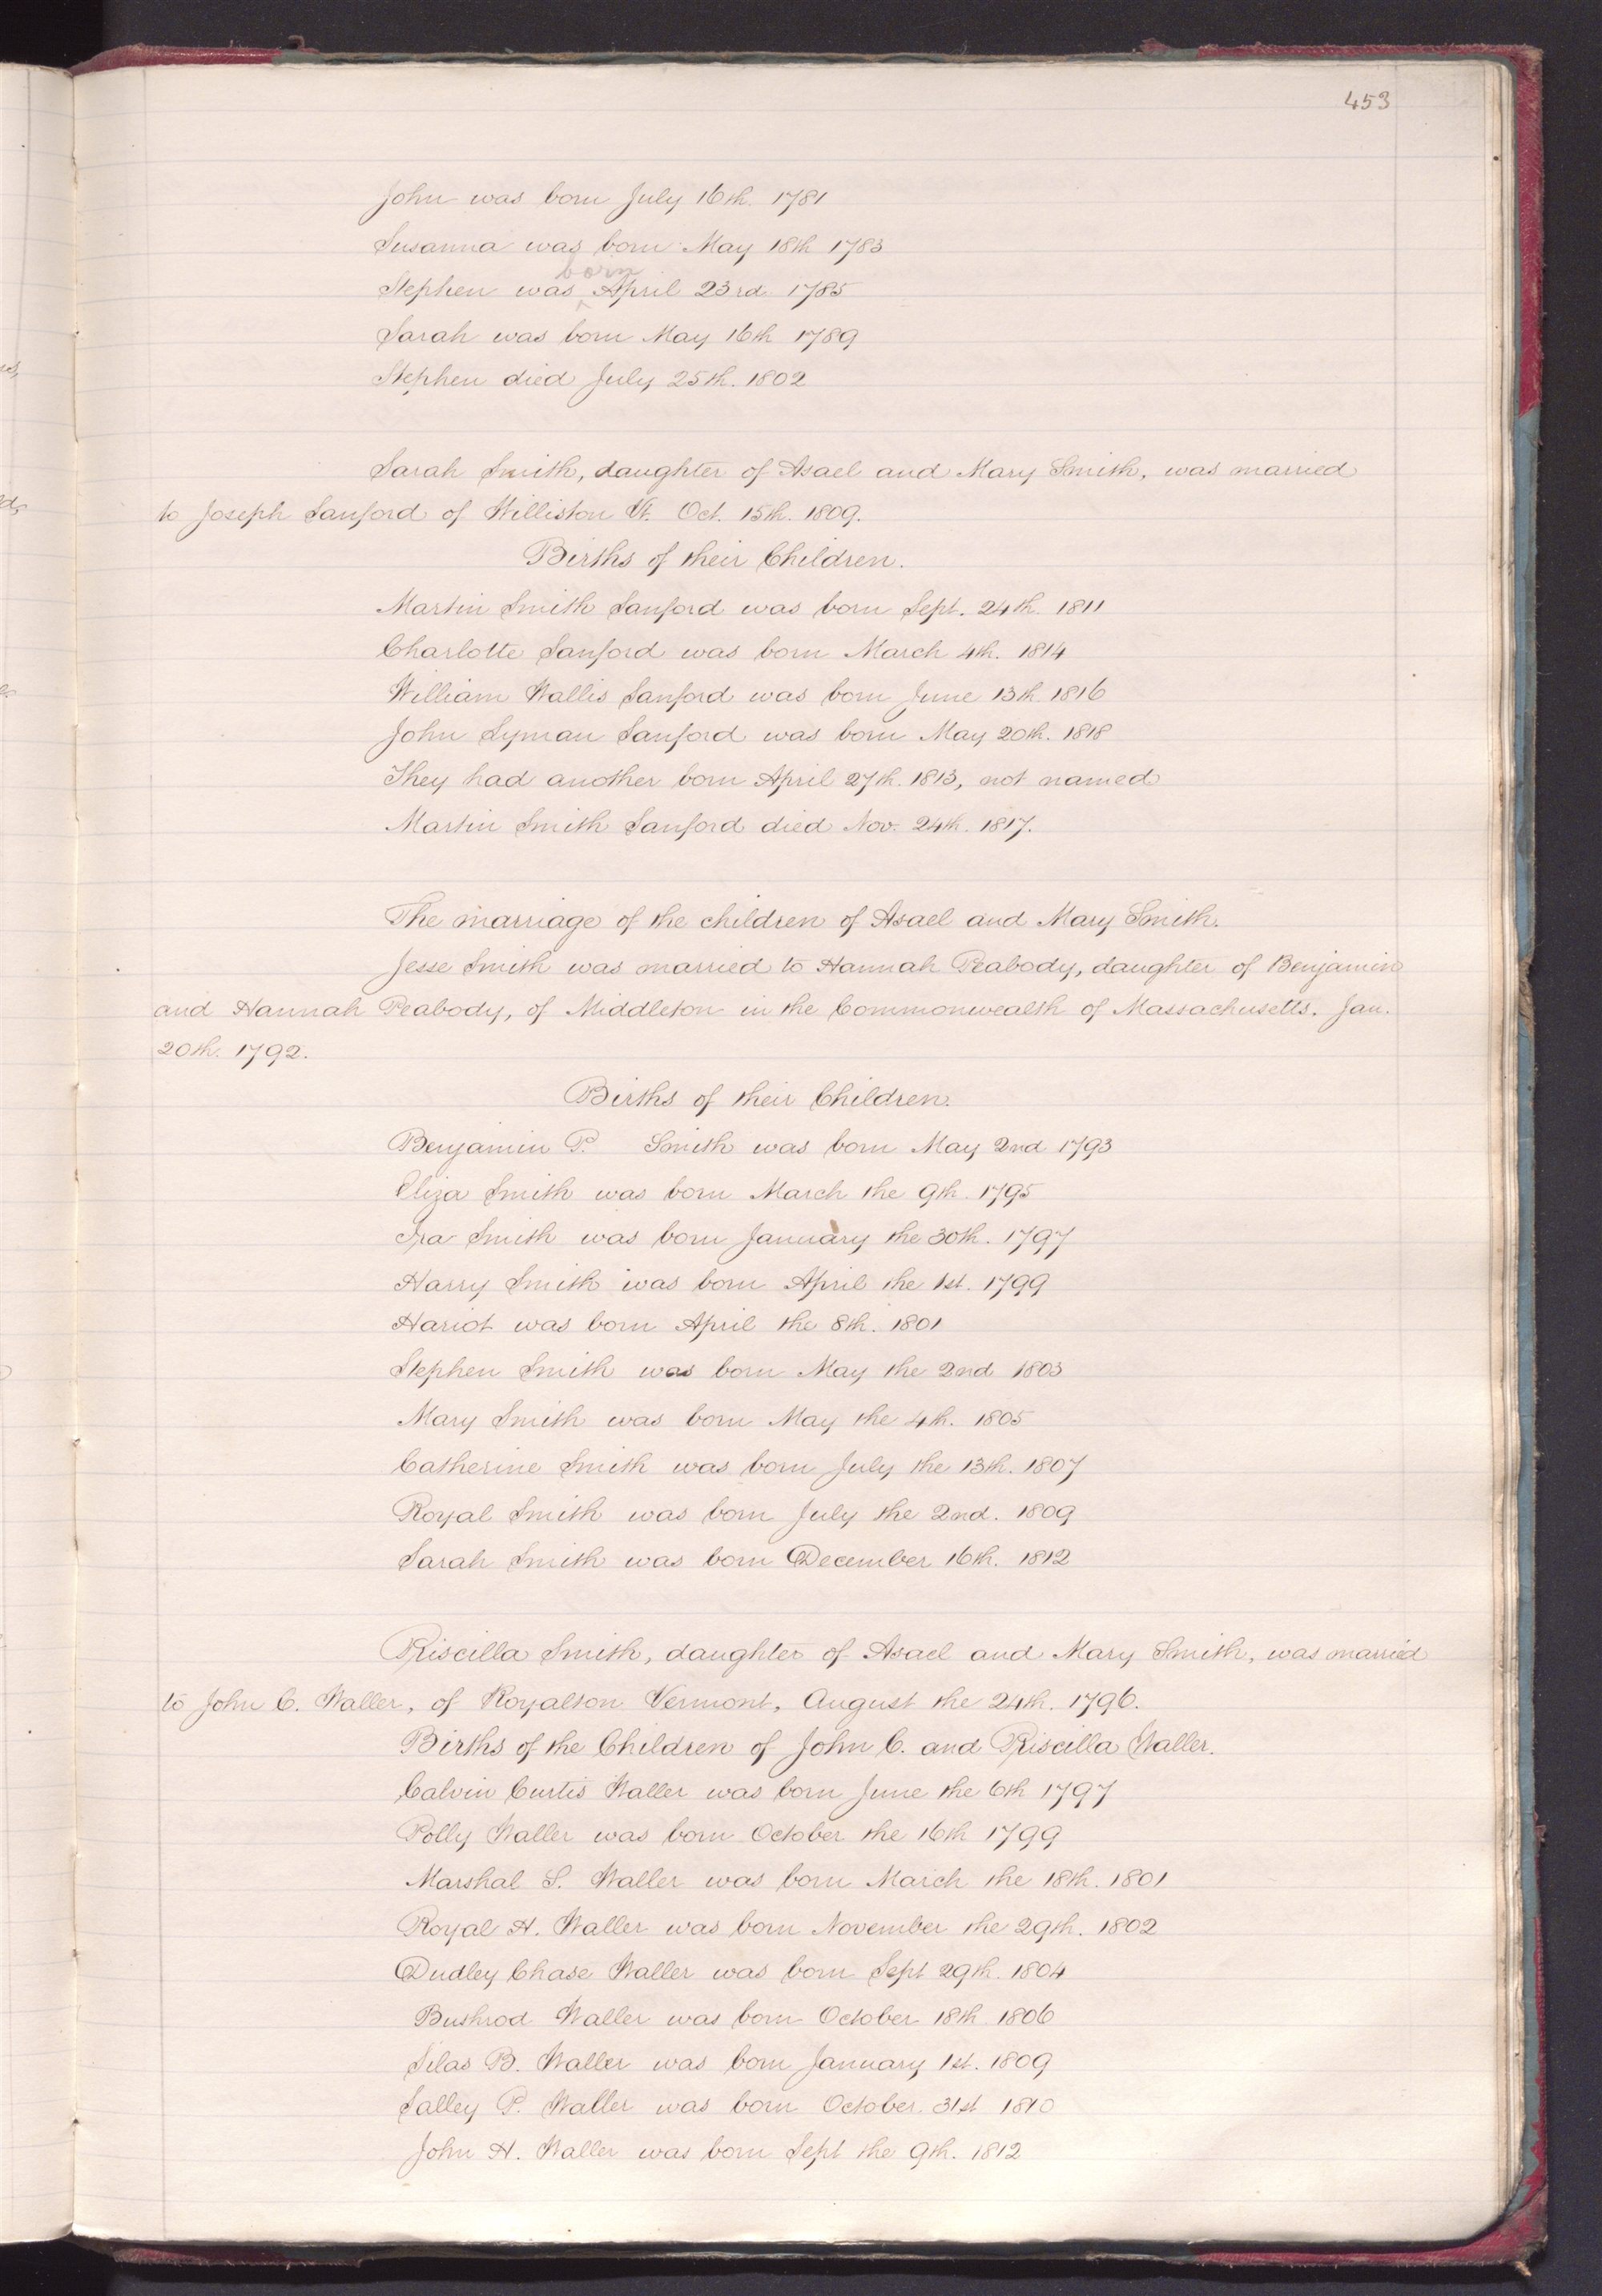 453
John was born July 16th. 1781
Susanna was born May 18th 1783
born
Stephen was ^ April 23rd. 1785
Sarah was born May 16th 1789
Stephen died July 25th. 1802
Sarah Smith, daughter of Asael and Mary Smith, was married
to Joseph Sanford of Williston Vt. Oct. 15th. 1809.
Births of their Children.
Martin Smith Sanford was born Sept. 24th. 1811
Charlotte Sanford was born March 4th. 1814
William Wallis Sanford was born June 13th. 1816
John Lyman Sanford was born May 20th. 1818
They had another born April 27th. 1813, not named
Martin Smith Sanford died Nov. 24th. 1817.
The marriage of the children of Asael and Mary Smith.
Jesse Smith was married to Hannah Peabody, daughter of Benjamin
and Hannah Peabody, of Middleton in the Commonwealth of Massachusetts. Jan.
20th. 1792.
Births of their Children.
Benjamin P. Smith was born May 2nd 1793
Eliza Smith was born March the 9th. 1795
Ira Smith was born January the 30th. 1797
Harry Smith was born April the 1st. 1799
Hariot was born April the 8th. 1801
Stephen Smith was born May the 2nd 1803
Mary Smith was born May the 4th. 1805
Catherine Smith was born July the 13th. 1807
Royal Smith was born July the 2nd. 1809
Sarah Smith was born December 16th. 1812
Priscilla Smith, daughter of Asael and Mary Smith, was married
to John C. Waller, of Royalton Vermont, August the 24th. 1796.
Births of the Children of John C. and Priscilla Waller.
Calvin Curtis Waller was born June the 6th 1797
Polly Waller was born October the 16th 1799
Marshal S. Waller was born March the 18th. 1801
Royal H. Waller was born November the 29th. 1802
Dudley Chase Waller was born Sept 29th. 1804
Bushrod Waller was born October 18th. 1806
Silas B. Waller was born January 1st. 1809
Salley P. Waller was born October. 31st 1810
John H. Waller was born Sept the 9th. 1812